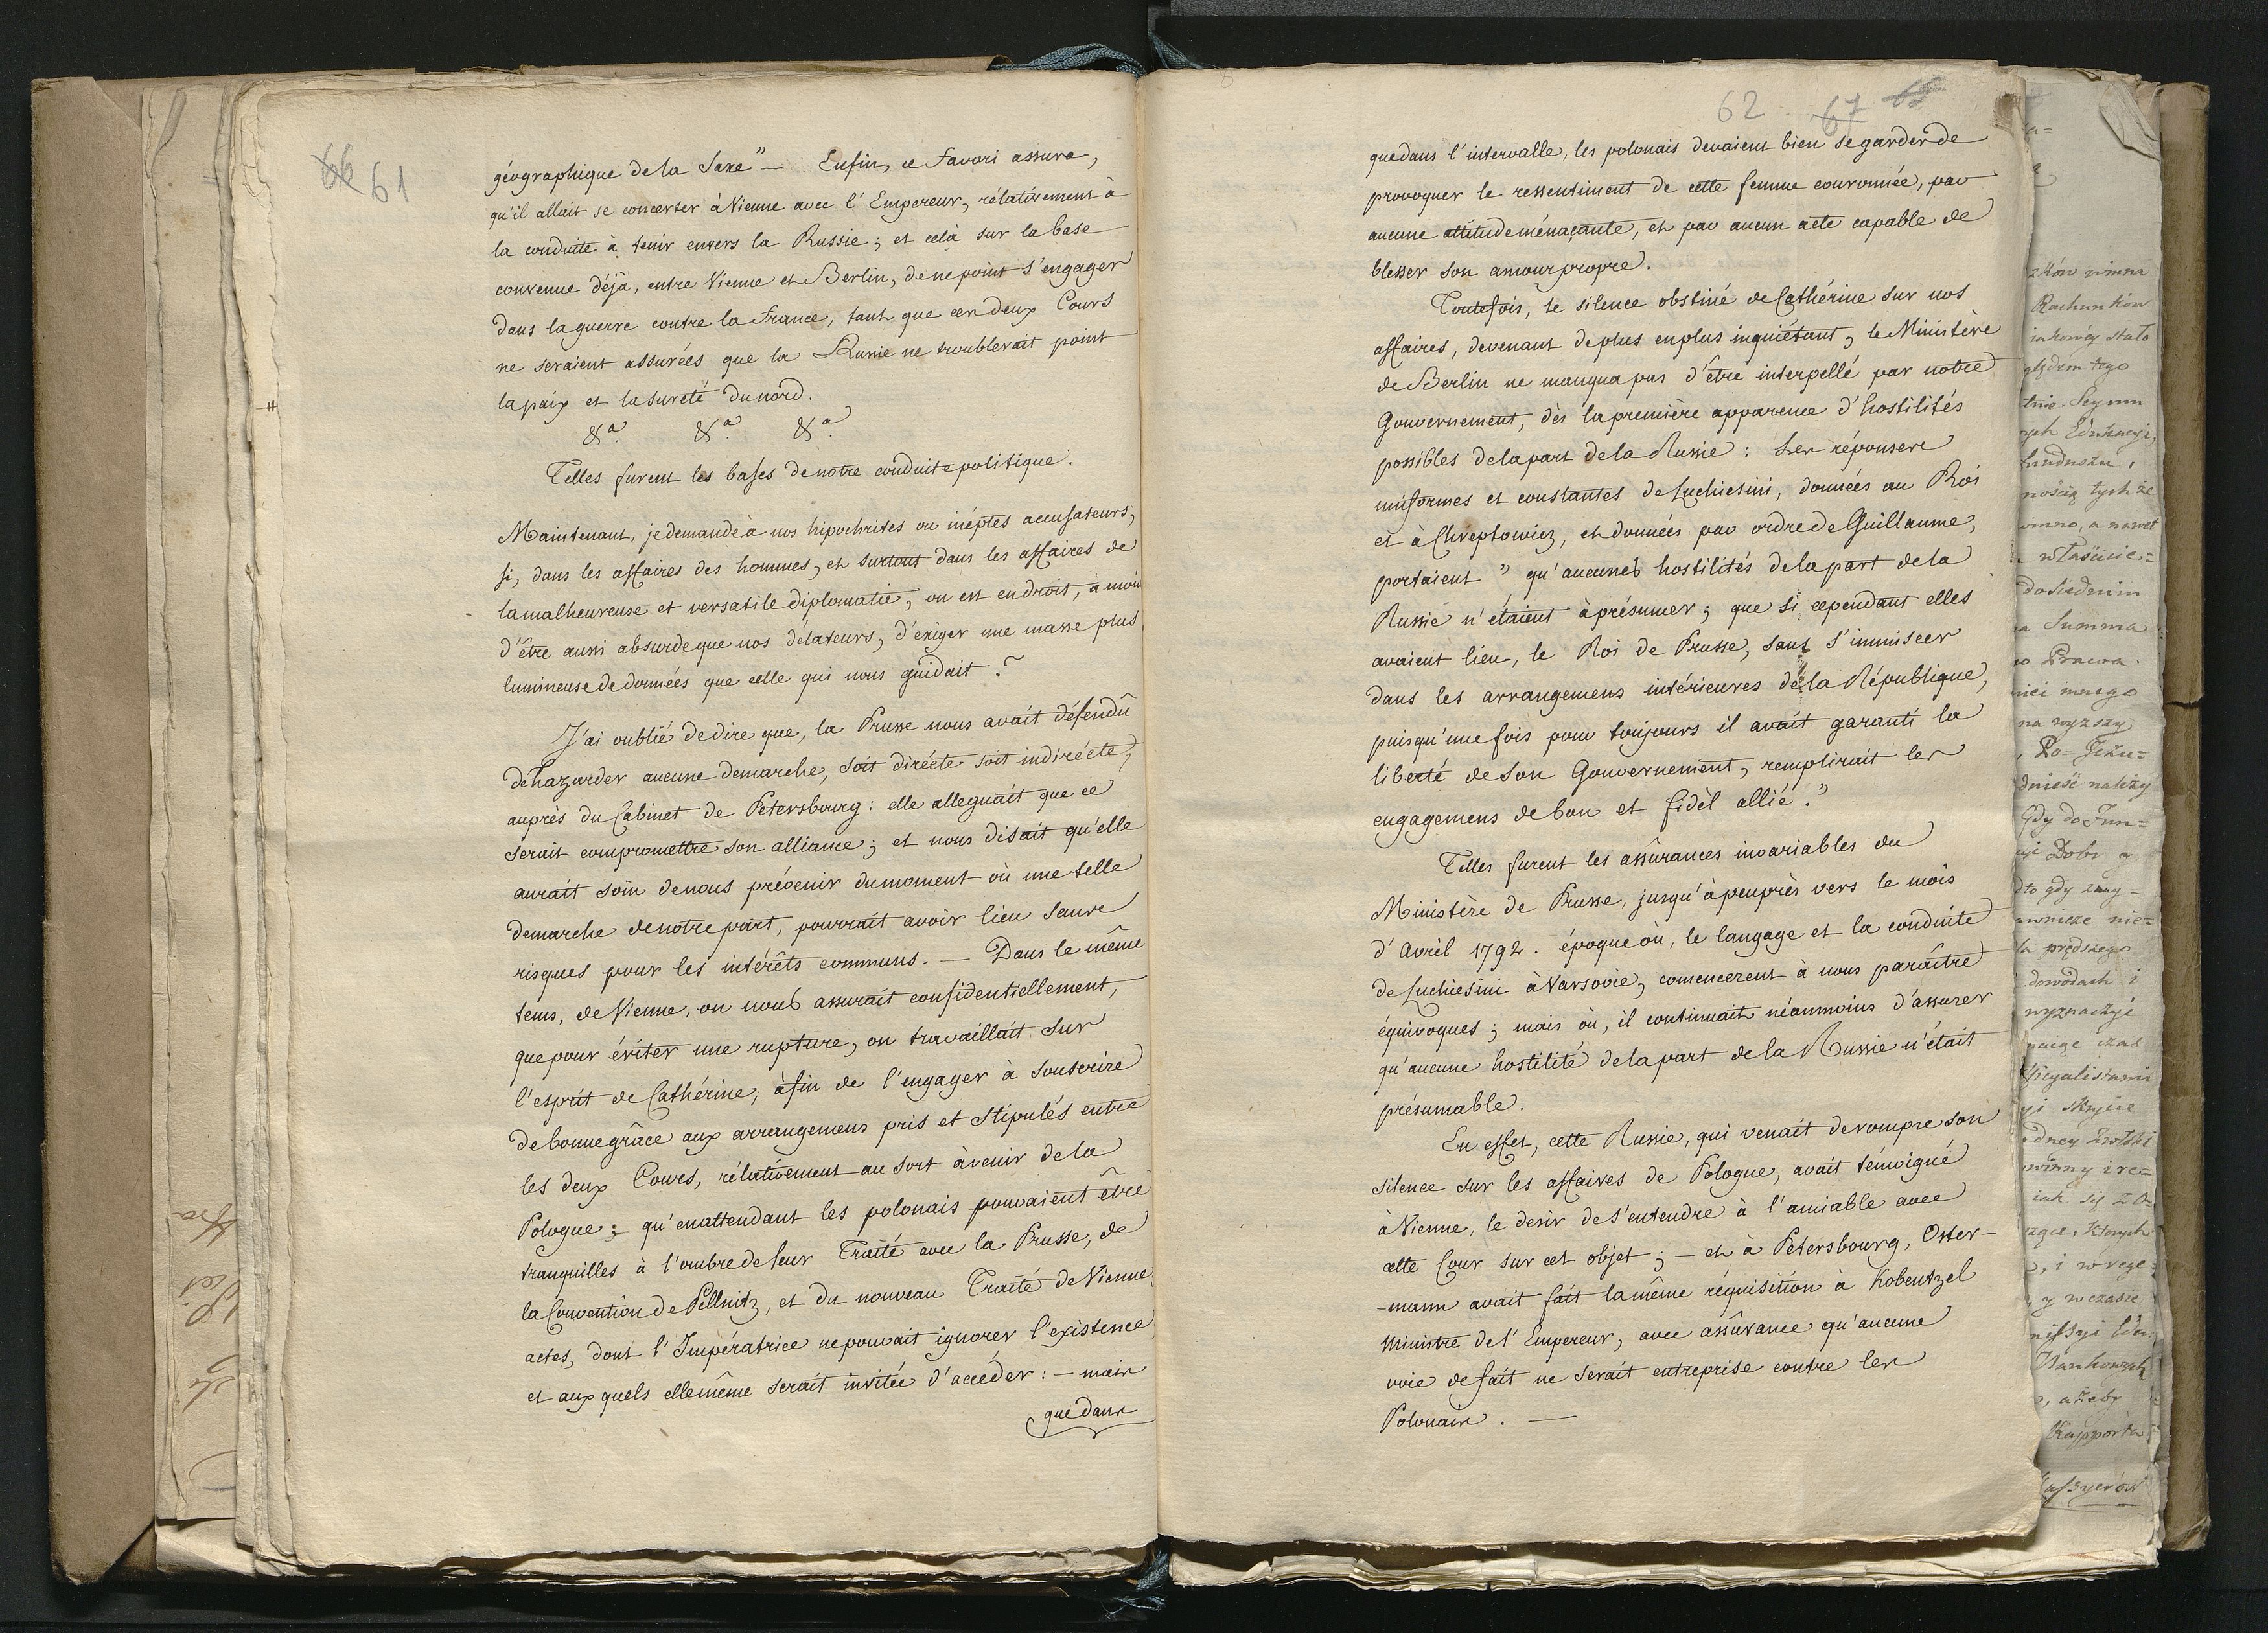 66 61
géographique de la Saxe" — Enfin, ce Favori assura,
qu'il allait se concerter à Vienne avec l'Empereur, rélativement à
la conduite à tenir envers la Russie ; et celà sur la base
convenue déjà, entre Vienne et Berlin, de ne point s'engager
dans la guerre contre la France, tant que ces deux Cours
ne seraient assurées que la Russie ne troublerait point
la paix et la sureté du nord.
&a. &a. &a.
Telles furent les bases de notre conduite politique.
Maintenant, je demande à nos hipochrites ou inéptes accusateurs,
si, dans les affaires des hommes, et surtout dans les affaires de
la malheureuse et versatile diplomatie, on est en droit, à moin
d'être aussi absurde que nos délateurs, d'exiger une masse plus
lumineuse de données que celle qui nous guidait ?
J'ai oublié de dire que, la Prusse nous avait défendû
de hazarder aucune demarche, soit dirécte soit indirécte,
auprès du Cabinet de Petersbourg : elle alleguait que ce
serait compromettre son alliance ; et nous disait qu'elle
aurait soin de nous prévenir du moment où une telle
demarche de notre part, pourrait avoir lieu sans
risques pour les intérêts communs. — Dans le même
tems, de Vienne, on nous assurait confidentiellement,
que pour éviter une rupture, on travaillait sur
l'esprit de Cathérine, àfin de l'engager à souscrire
de bonne grâce aux arrangemens pris et stipulés entre
les deux Cours, rélativement au sort à venir de la
Pologne ; qu'en attendant les polonais pouvaient être
tranquilles à l'ombre de leur Traité avec la Prusse, de
la Convention de Pillnitz, et du nouveau Traité de Vienne
actes, dont l'Impératrice ne pouvait ignorer l'existence
et aux quels elle même serait invitée d'accéder : — mais
que dans
62 67 65
que dans l'intervalle, les polonais devaient bien se garder de
provoquer le ressentiment de cette femme couronnée, par
aucune attitude ménaçante, et par aucun acte capable de
blesser son amour propre.
Toutefois, le silence obstiné de Cathérine sur nos
affaires, devenant de plus en plus inquiétant, le Ministère
de Berlin ne manqua pas d'être interpellé par notre
Gouvernement, dès la première apparence d'hostilités
possibles de la part de la Russie : Les réponses
uniformes et constantes de Luchiesini, données au Roi
et à Chreptowicz, et données par ordre de Guillaume,
portaient " qu'aucunes hostilités de la part de la
Russie n'étaient à présumer ; que si, cependant elles
avaient lieu, le Roi de Prusse, sans s'immiscer
dans les arrangemens intérieures de la République,
puisqu'une fois pour toujours il avait garanti la
liberté de son Gouvernement, remplirait les
engagemens de bon et fidèl allié."
Telles furent les assûrances invariables du
Ministère de Prusse, jusqu'à peuprès vers le mois
d'Avril 1792. époque où, le langage et la conduite
de Luchiesini à Varsovie, comencerent à nous paraître
équivoques ; mais où, il continuait néanmoins d'assurer
qu'aucune hostilité de la part de la Russie n'était
présumable.
En effet, cette Russie, qui venait de rompre son
silence sur les affaires de Pologne, avait témoigné
à Vienne, le desir de s'entendre à l'amiable avec
cette Cour sur cet objet ; — et à Petersbourg, Oster-
-mann avait fait la même réquisition à Kobentzel
Ministre de l'Empereur, avec assûrance qu'aucune
voie de fait ne serait entreprise contre les
Polonais. —
Rachunków
tnie. Seym
nością tych że
imno, a nawet
właście=
dosiednim
Summa
Prawa.
innego
na wyższy
dnieść należy
Gdy do Fun=
Dobr
dto gdy
prędszego
dowodach i
wyznaczyć
iak się
i w rege
y w czasie
Bankowych
ażeby
Rapporta